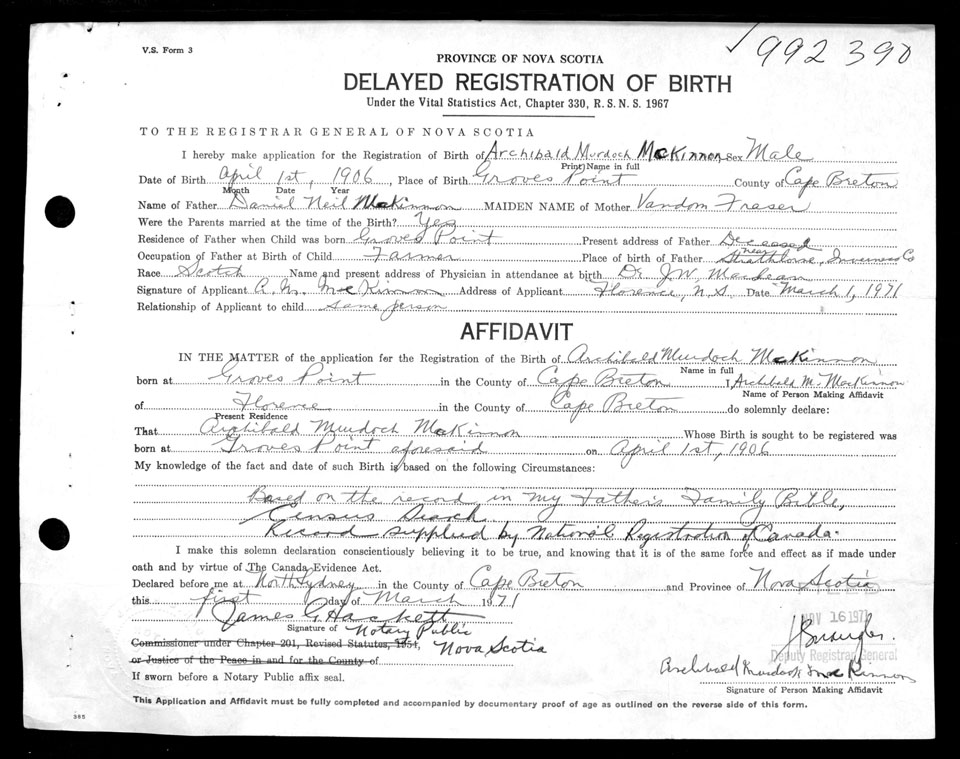 V.S. Form 3
992 390
PROVINCE OF NOVA SCOTIA
DELAYED REGISTRATION OF BIRTH
Under the Vital Statistics Act, Chapter 330, R. S. N. S. 1967
TO THE REGISTRAR GENERAL OF NOVA SCOTIA
I hereby make application for the Registration of Birth of Archibald Murdoch McKinnon Sex Male
(Print) Name in full
Date of Birth April 1st, 1906, Place of Birth Groves Point County of Cape Breton
Month Date Year
Name of Father Daniel Neil McKinnon MAIDEN NAME of Mother Fraser
Were the Parents married at the time of the Birth? Yes
Residence of Father when Child was born Groves Point Present address of Father Deceased
Occupation of Father at Birth of Child Farmer Place of birth of Father near Strathlorne, Inverness Co
Race Scotch Name and present address of Physician in attendance at birth Dr. J.W.
Signature of Applicant A. M. McKinnon Address of Applicant Florence, N.S. Date March 1, 1971
Relationship of Applicant to child same person
AFFIDAVIT
IN THE MATTER of the application for the Registration of the Birth of Archibald Murdoch McKinnon
Name in full
born at Groves Point in the County of Cape Breton I Archibald M. MacKinnon
Name of Person Making Affidavit
of Florence in the County of Cape Breton do solemnly declare:
Present Residence
That Archibald Murdoch McKinnon Whose Birth is sought to be registered was
born at Groves Point aforesaid on April 1st, 1906
My knowledge of the fact and date of such Birth is based on the following Circumstances:
Based on the record in my Father's Family Bible,
Census Search
Record supplied by National Registration of Canada.
I make this solemn declaration conscientiously believing it to be true, and knowing that it is of the same force and effect as if made under
oath and by virtue of The Canada Evidence Act.
Declared before me at North Sydney in the County of Cape Breton and Province of Nova Scotia
this first day of March 1971
James G Hackett
Signature of Notary Public
Commissioner under Chapter 201, Revised Statutes, 1954, Nova Scotia
or Justice of the Peace in and for the County of
NOV 16 1971
Deputy Registrar General
If sworn before a Notary Public affix seal.
Archibald Murdoch McKinnon
Signature of Person Making Affidavit
This Application and Affidavit must be fully completed and accompanied by documentary proof of age as outlined on the reverse side of this form.
385